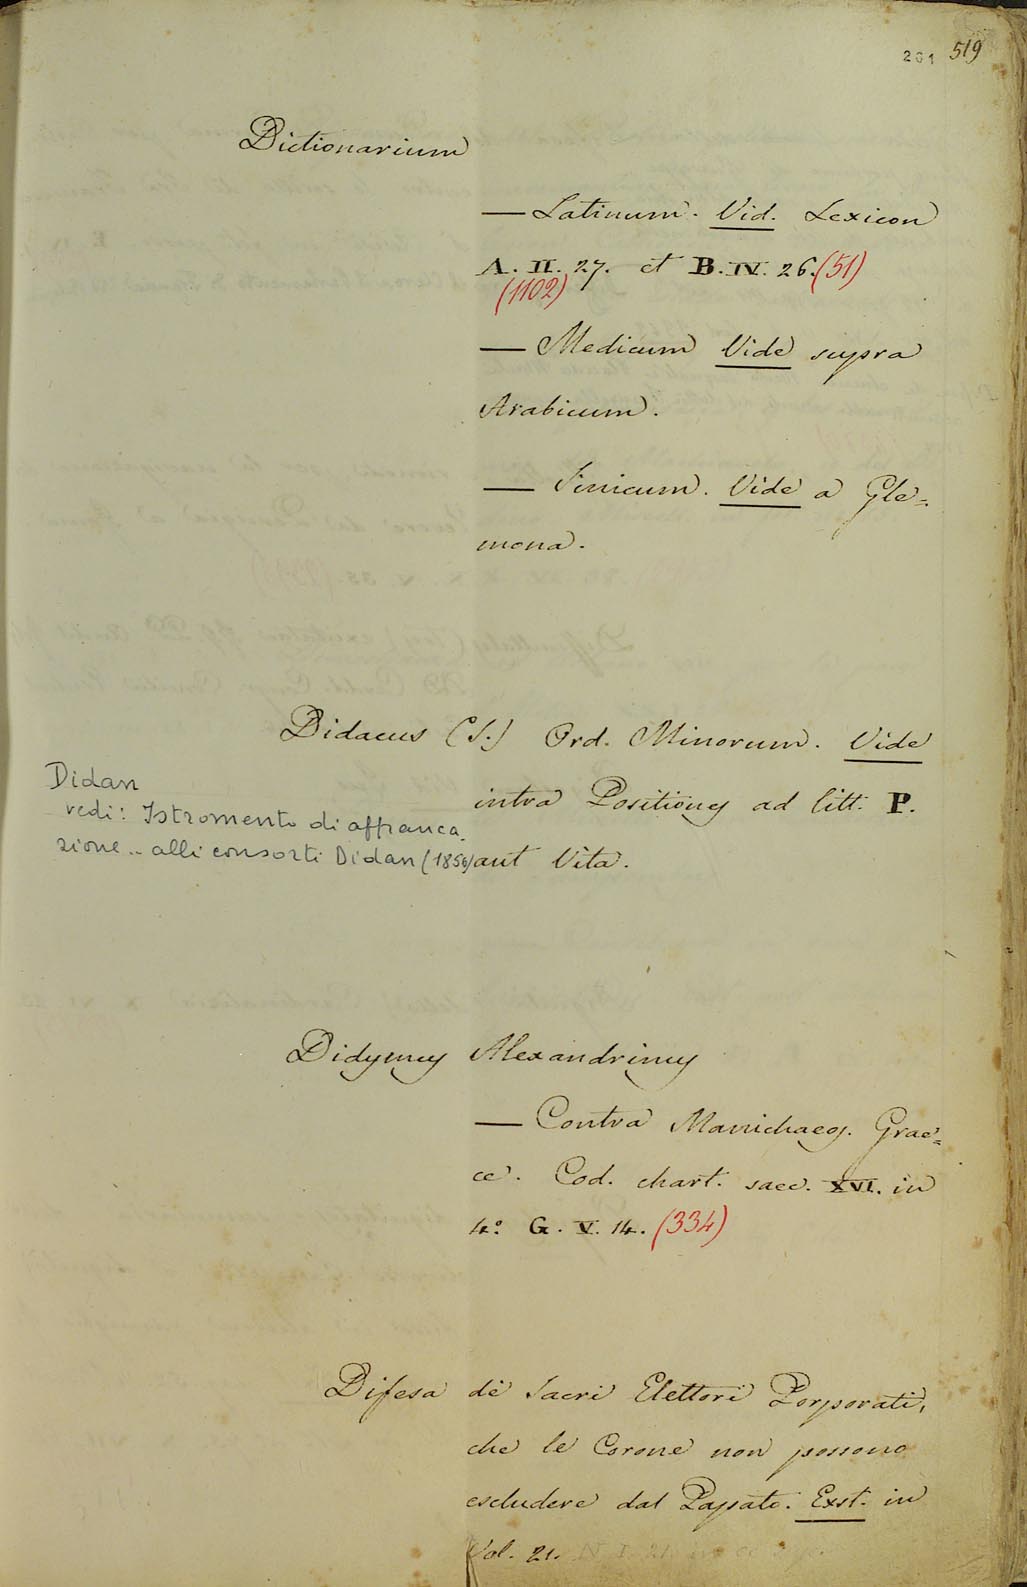 201 519
Dictionarium
— Latinum. Vid. Lexicon
A. II. 27. et B. IV. 26. (51)
(1102)
— Medicum Vide supra
Arabicum.
— Sinicum. Vide a Gle=
mona.
Didacus (S.) Ord. Minorum. Vide
intra Positiones ad litt. P.
aut Vita.
Didan
vedi: Istromento di affranca
zione .. alli consorti Didan (1856)
Didymus Alexandrinus
— Contra Manichaeos. Grae=
ce. Cod. chart. saec. XVI. in
4.° G. V. 14. (334)
Difesa de Sacri Elettori Porporati,
che le Corone non possono
escludere dal Papato. Exst. in
Vol. 21.